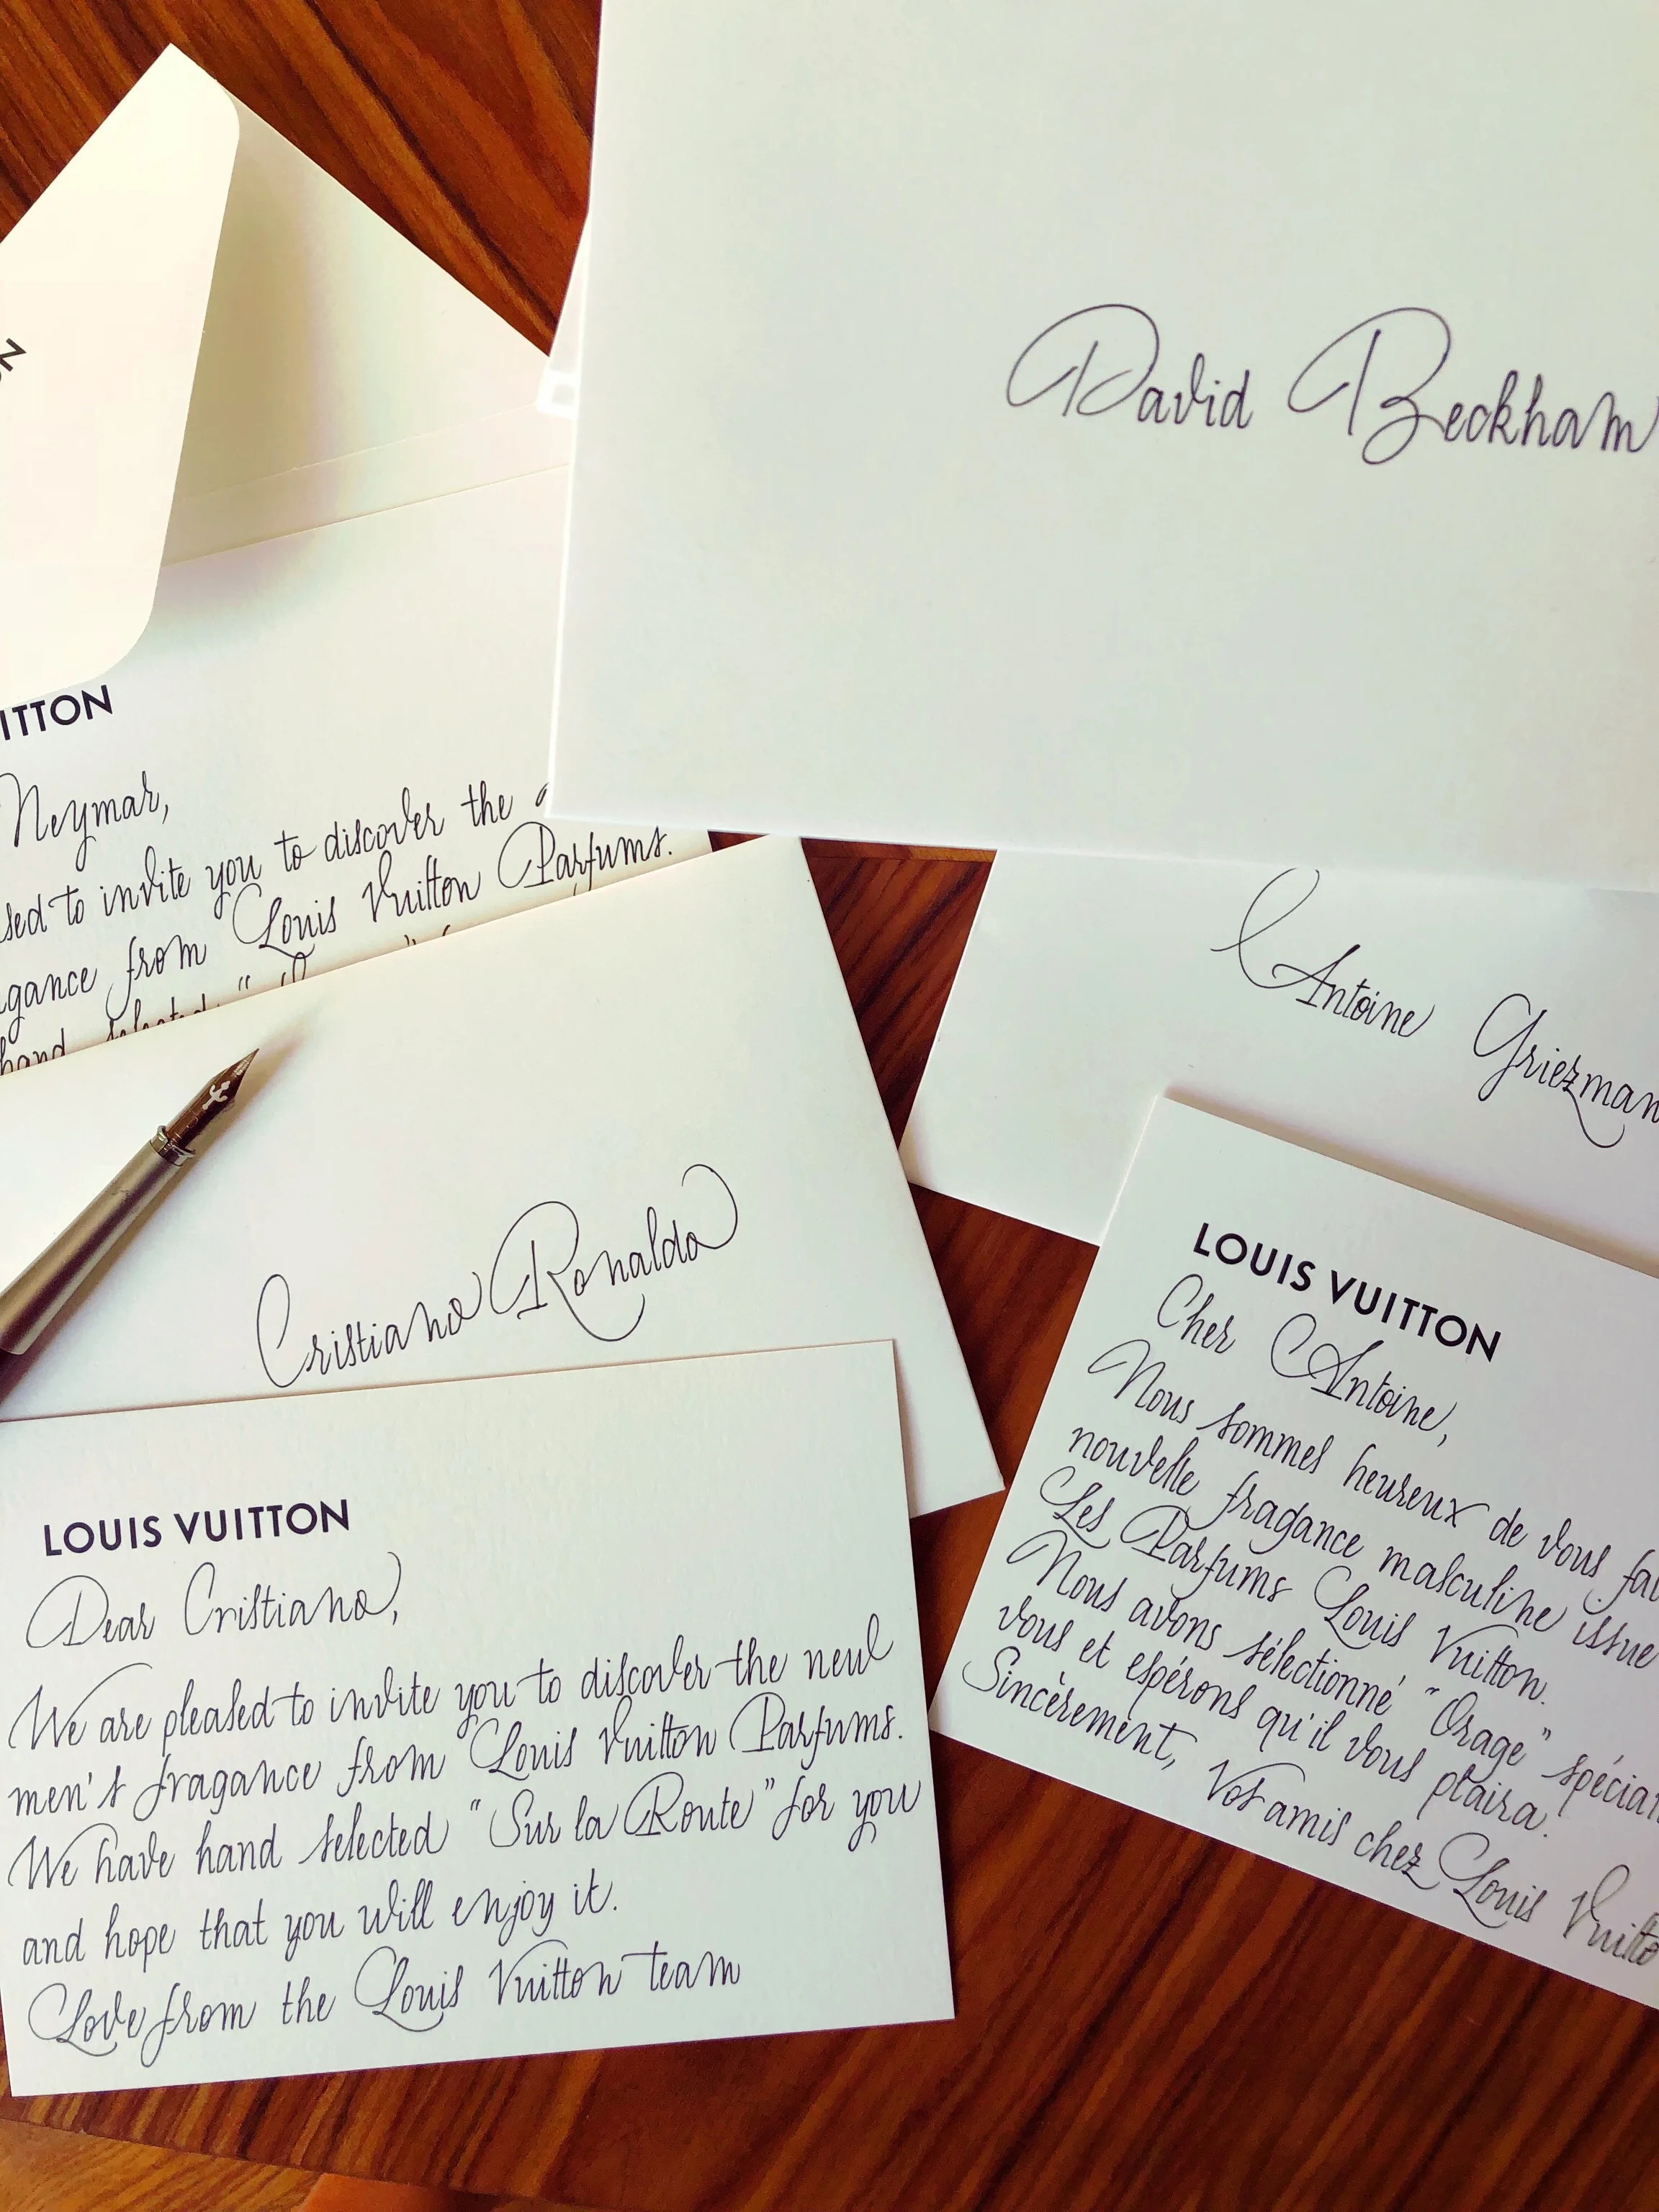 David Beckham
ITTON
Neymar,
sed to invite you to discover the
gance from Louis Vuitton Parfums.
hand selected "
Antoine Griezman
Cristiano Ronaldo
LOUIS VUITTON
Cher Antoine,
Nous sommes heureux de vous fai
nouvelle fragance masculine issue
Les Parfums Louis Vuitton.
Nous avons sélectionné "Orage" spécia
vous et espérons qu'il vous plaira.
Sincèrement, Vos amis chez Louis Vuitto
LOUIS VUITTON
Dear Cristiano,
We are pleased to invite you to discover the new
men's fragance from Louis Vuitton Parfums.
We have hand selected "Sur la Route" for you
and hope that you will enjoy it.
Love from the Louis Vuitton team